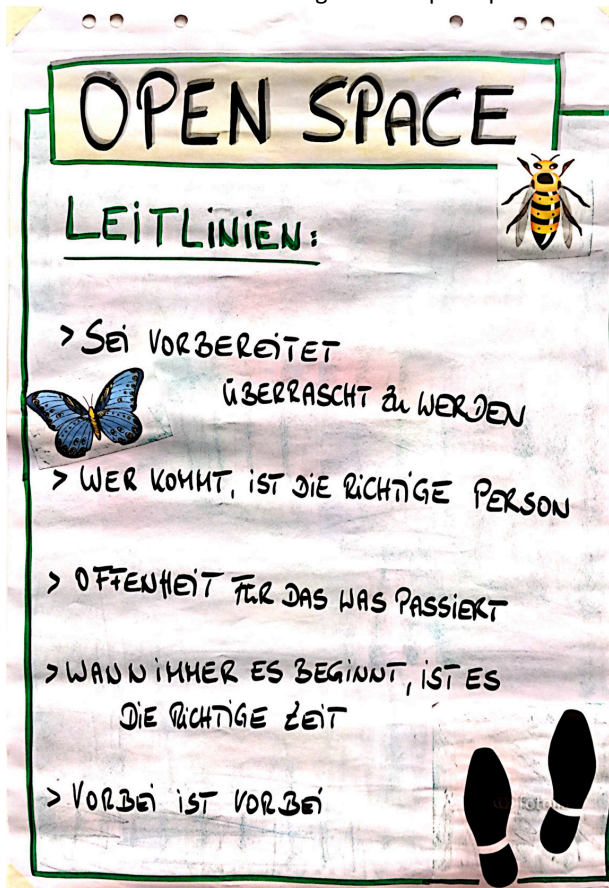 OPEN SPACE
LEITLINIEN:
> SEI VORBEREITET
ÜBERRASCHT ZU WERDEN
> WER KOMMT, IST DIE RICHTIGE PERSON
> OFFENHEIT FÜR DAS WAS PASSIERT
> WANN IMMER ES BEGINNT, IST ES
DIE RICHTIGE ZEIT
> VORBEI IST VORBEI